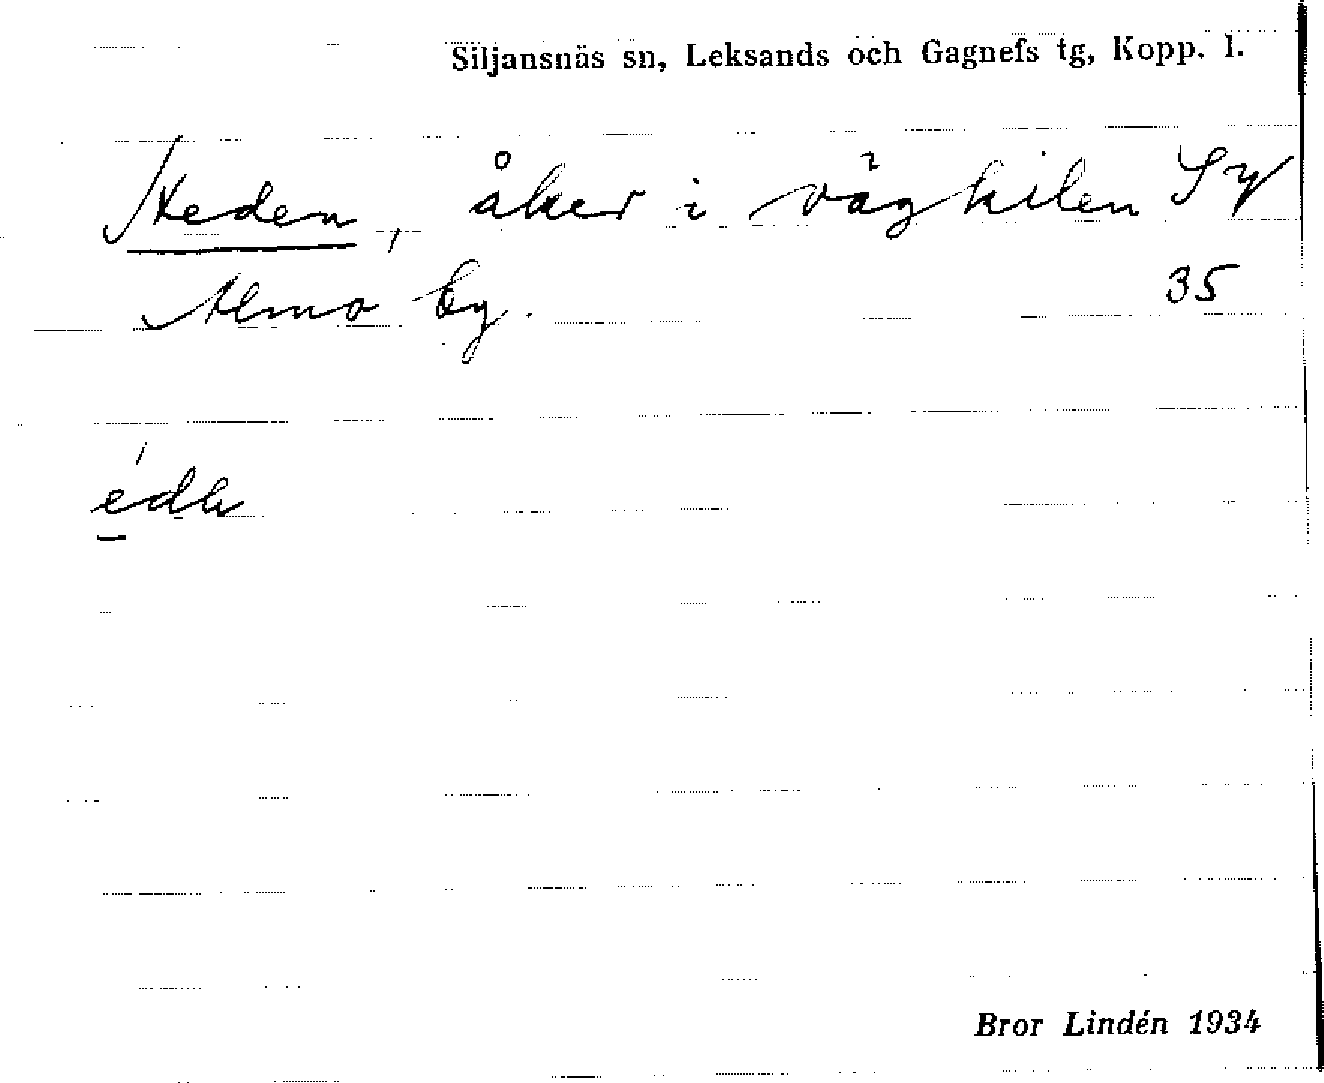 Siljansnäs sn, Leksands och Gagnefs tg, Kopp. l.
Heden, åker i vägkilen Sy
Almo by. 35
Bror Lindén 1934